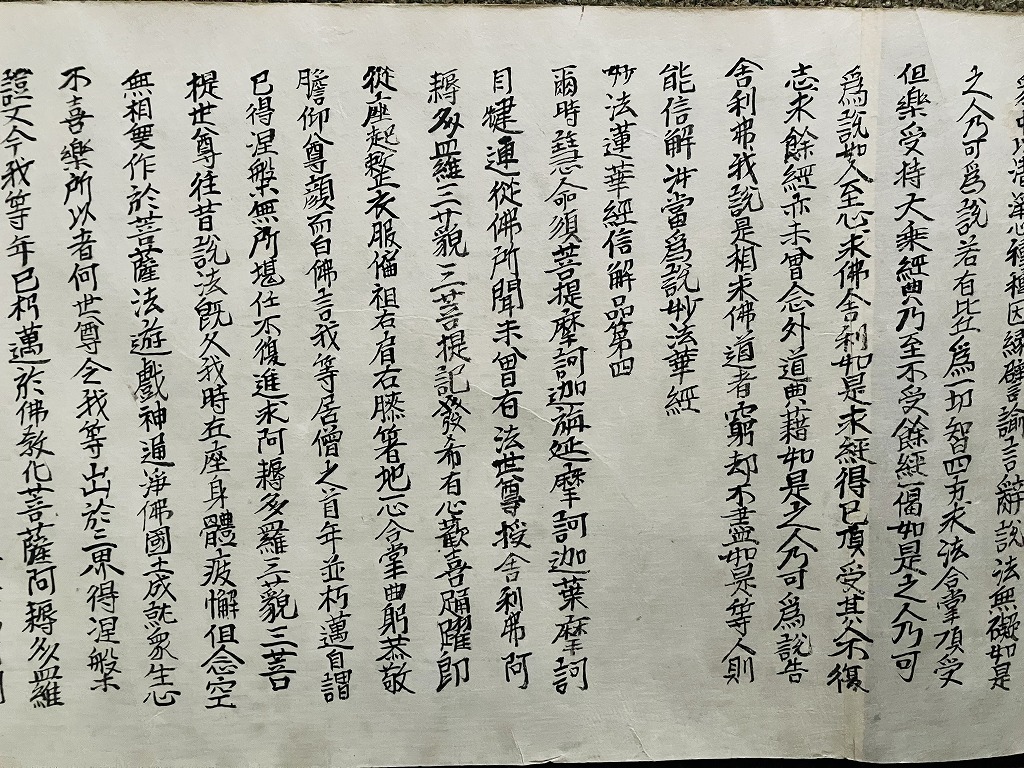 眾中以清淨心種種因緣譬諭言辭說法無礙如是
之人乃可為說若有比丘為一切智四方求法合掌頂受
但樂受持大乘經典乃至不受餘經一偈如是之人乃可
為說如人至心求佛舍利如是求經得已頂受其人不復
志求餘經亦未曾念外道典藉如是之人乃可為說告
舍利弗我說是相求佛道者窮劫不盡如是等人則
能信解汝當為說妙法華經
妙法蓮華經信解品第四
爾時慧命須菩提摩訶迦旃延摩訶迦葉摩訶
目犍連從佛所聞未曾有法世尊授舍利弗阿
耨多羅三藐三菩提記發希有心歡喜踊躍即
從座起整衣服偏袒右肩右膝著地一心合掌曲躬恭敬
瞻仰尊顏而白佛言我等居僧之首年並朽邁自謂
已得涅槃無所堪任不復進求阿耨多羅三藐三菩
提世尊往昔說法既久我時在座身體疲懈但念空
無相無作於菩薩法遊戲神通淨佛國土成就眾生心
不喜樂所以者何世尊令我等出於三界得涅槃
證又今我等年已朽邁於佛教化菩薩阿耨多羅